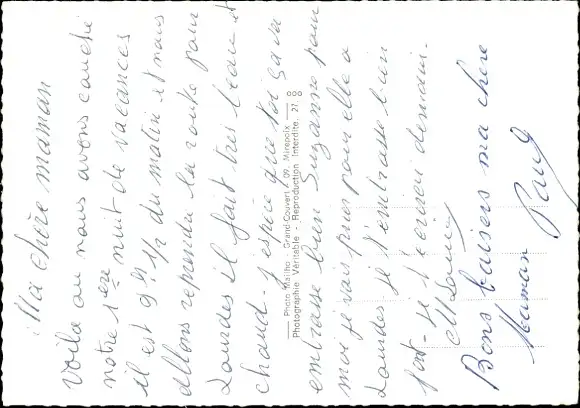 Ma chère maman
voilà où nous avons couché
notre 1ère nuit de vacances
il est 9h 1/2 du matin et nous
allons reprendre la route pour
Lourdes il fait très beau et
chaud - j'espère que toi ça va
embrasse bien Suzanne pour
moi je vais prier pour elle a
Lourdes je t'embrasse bien
fort - je t'écrirai demain.
Bons baisers ma chère
Maman Paul
Photo Mailho - Grand-Couvert 09. Mirepoix
Photographie Véritable - Reproduction Interdite. 27